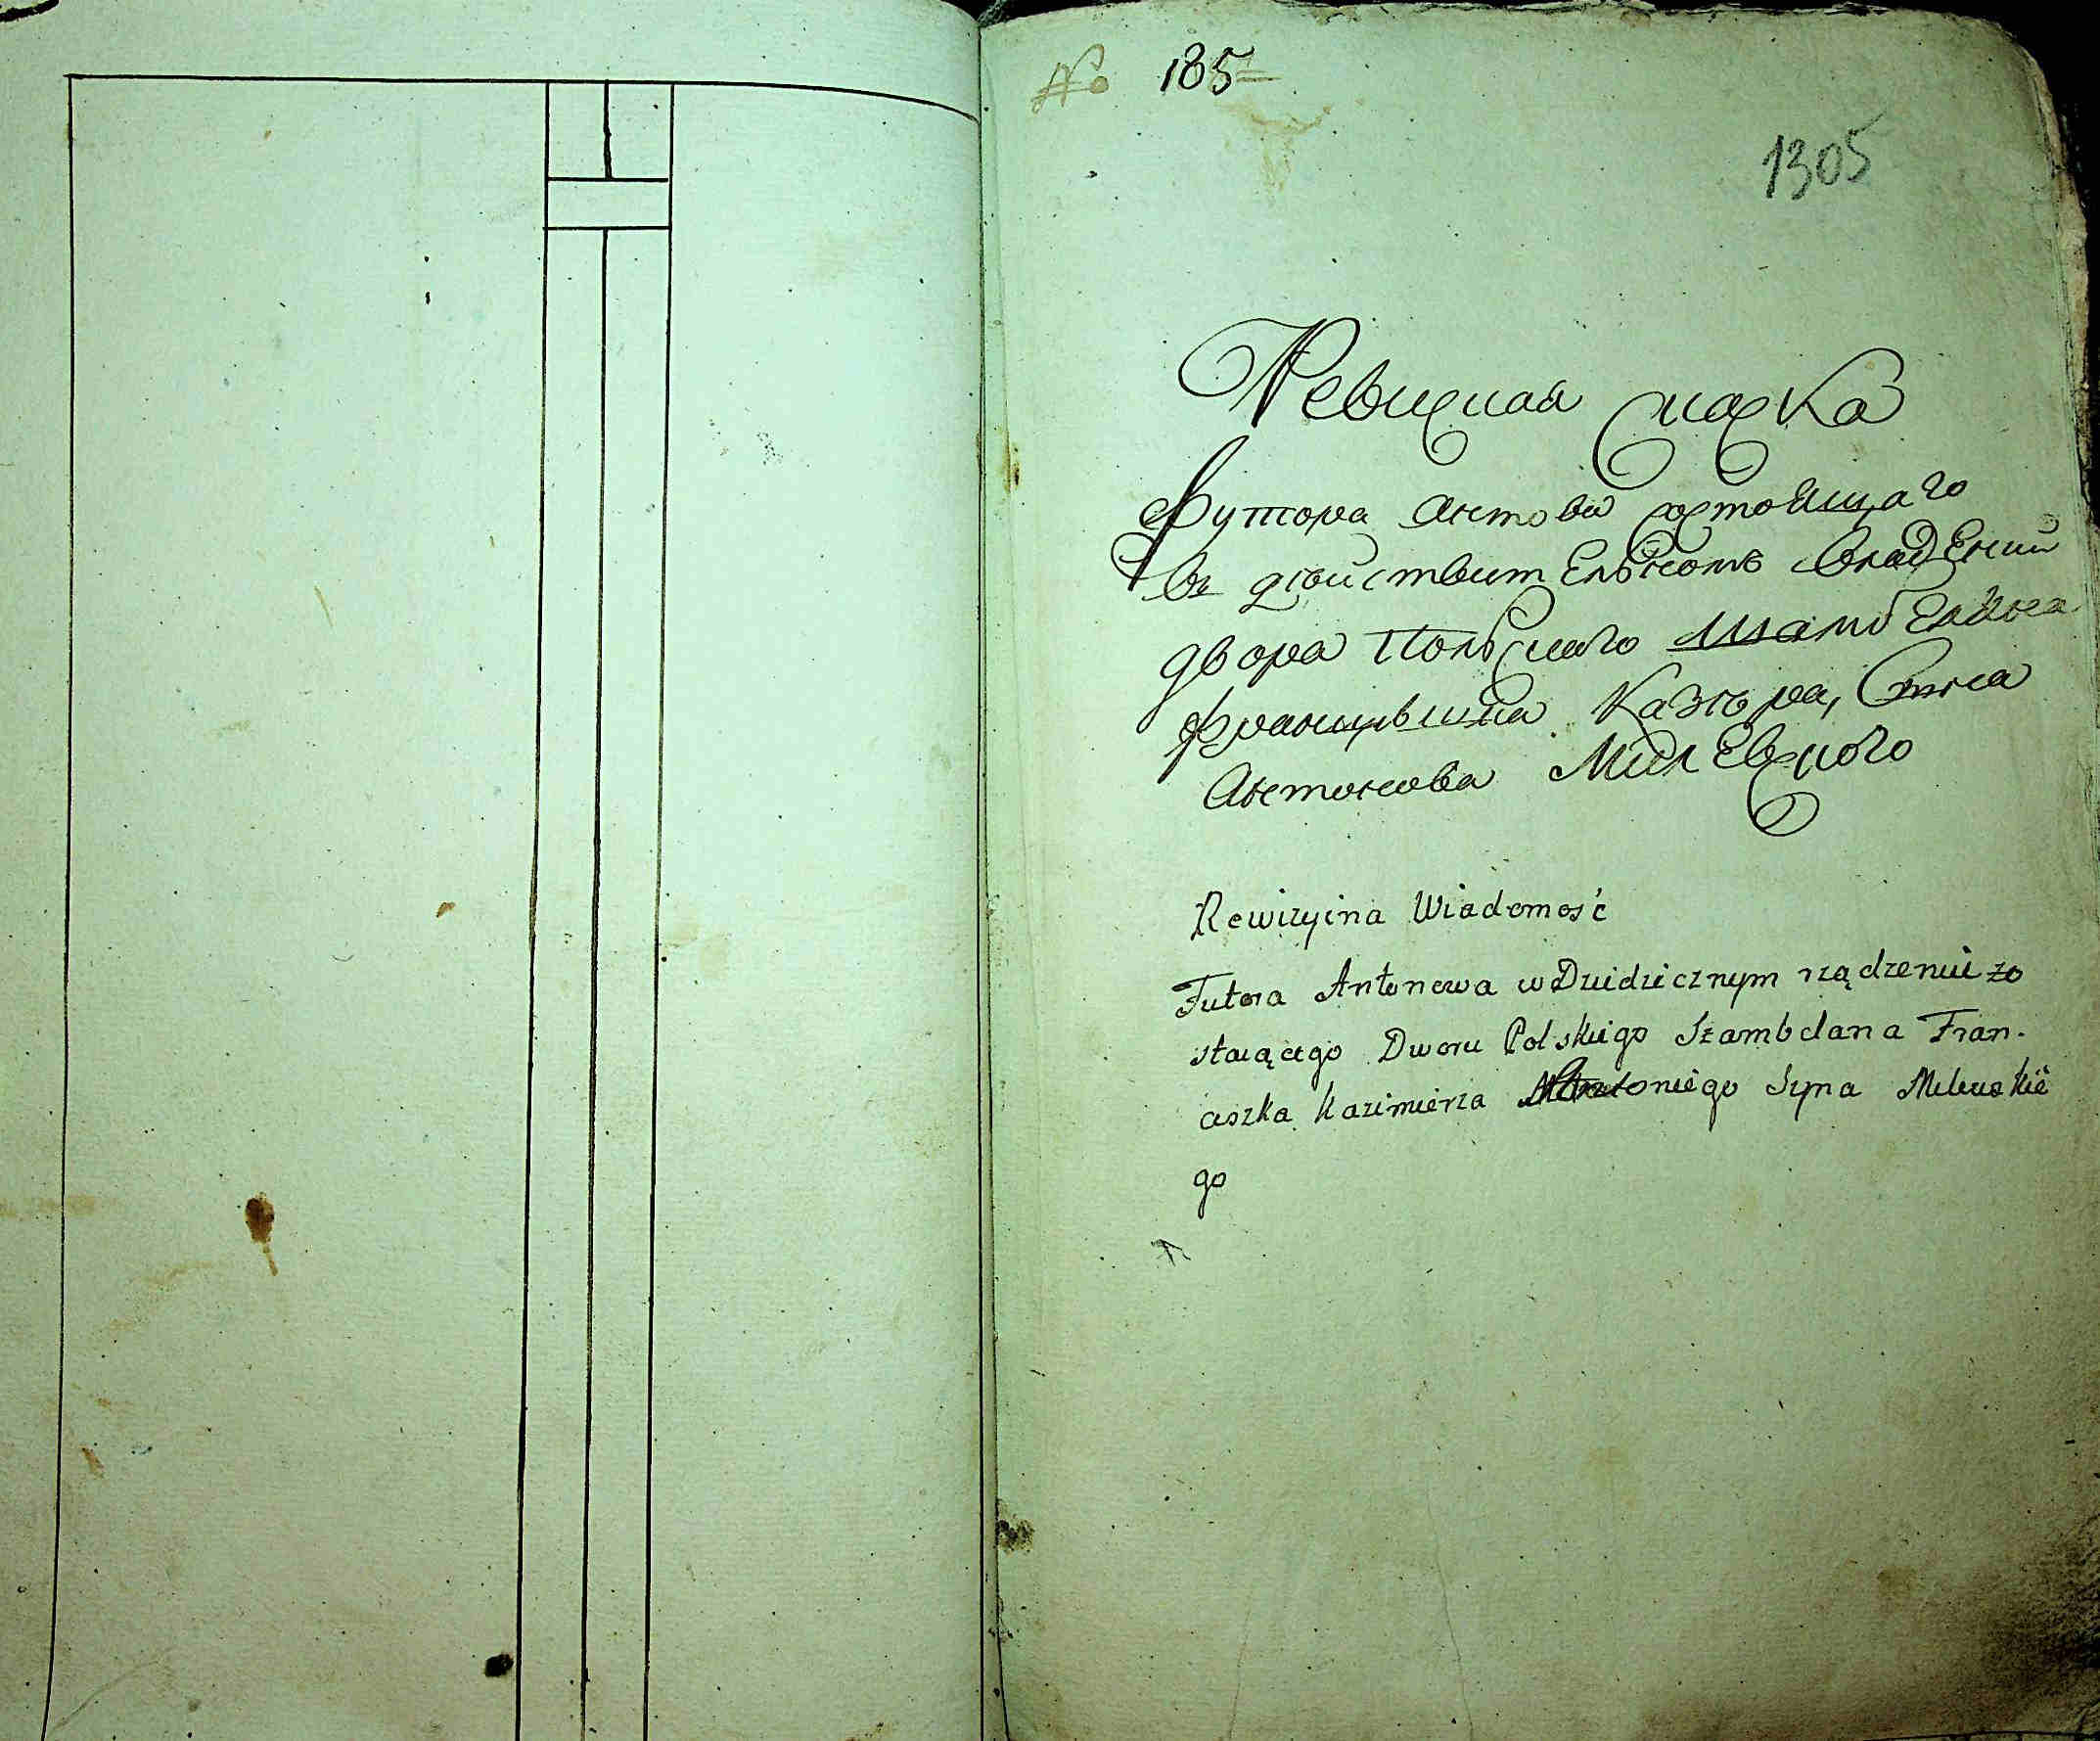 No 185
1305
Ревиская скаска
Футора Антова состоящаго
въ дѣйствителномъ владении
двора Польскаго шамбеляна
Францишка Казѣра, Сына
Антонова Милевского
Rewizyina Wiadomość
Futora Antonowa w Dziedzicznym rządzeniu zo
staiącego Dworu Polskiego Szambelana Fran-
ciszka Kazimierza Antoniego Syna Milewskie
go